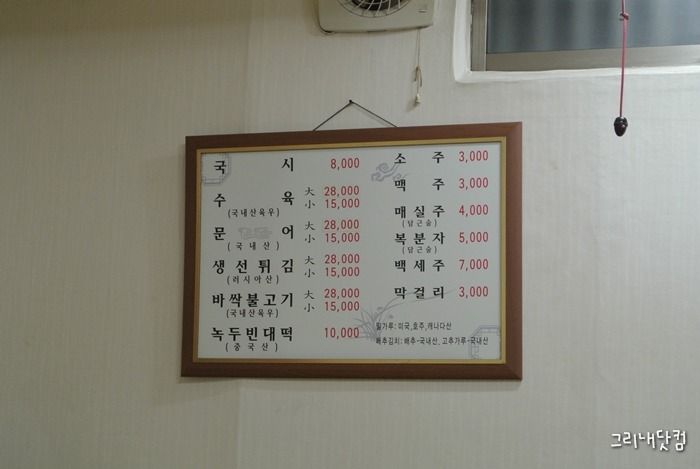 국 시 8,000
수 육 大 28,000
(국내산육우) 小 15,000
문 어 大 28,000
(국 내 산) 小 15,000
생 선 튀 김 大 28,000
(러시아산) 小 15,000
바싹불고기 大 28,000
(국내산육우) 小 15,000
녹두빈대떡 10,000
(중국산)
소 주 3,000
맥 주 3,000
매실주 4,000
(담근술)
복분자 5,000
(담근술)
백세주 7,000
막걸리 3,000
밀가루: 미국,호주,캐나다산
배추김치: 배추-국내산, 고추가루-국내산
그리내닷컴